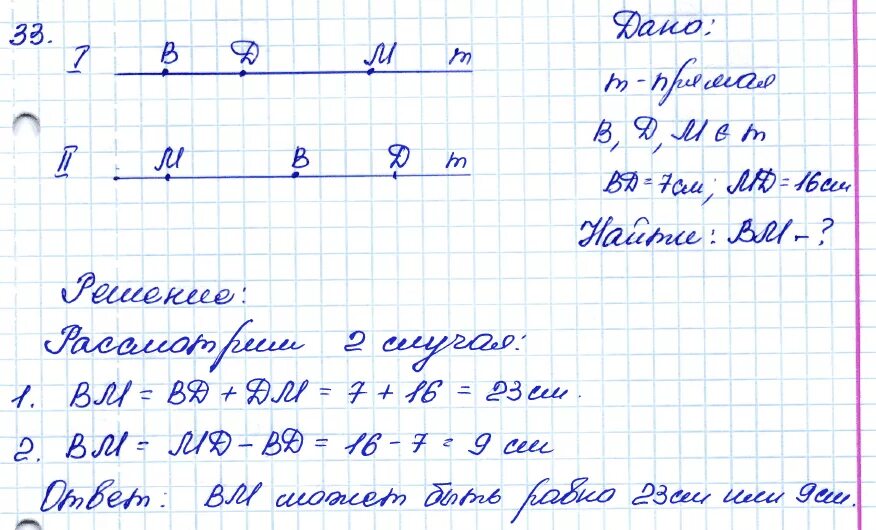 33.
I В Д М m
II М В Д m
Дано:
m - прямая
В, Д, М ∈ m
ВД = 7см; МД = 16см
Найти: ВМ - ?
Решение:
Рассмотрим 2 случая:
1. ВМ = ВД + ДМ = 7 + 16 = 23см.
2. ВМ = МД - ВД = 16 - 7 = 9 см
Ответ: ВМ может быть равно 23см или 9см.